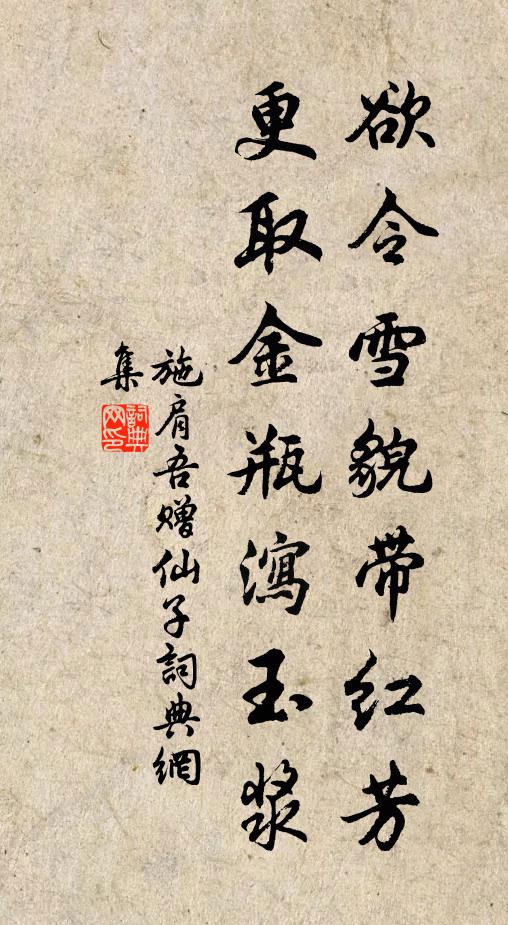 欲令雪貌带红芳
更取金瓶瀉玉漿
施肩吾赠仙子詞典網
集
詞典
网印